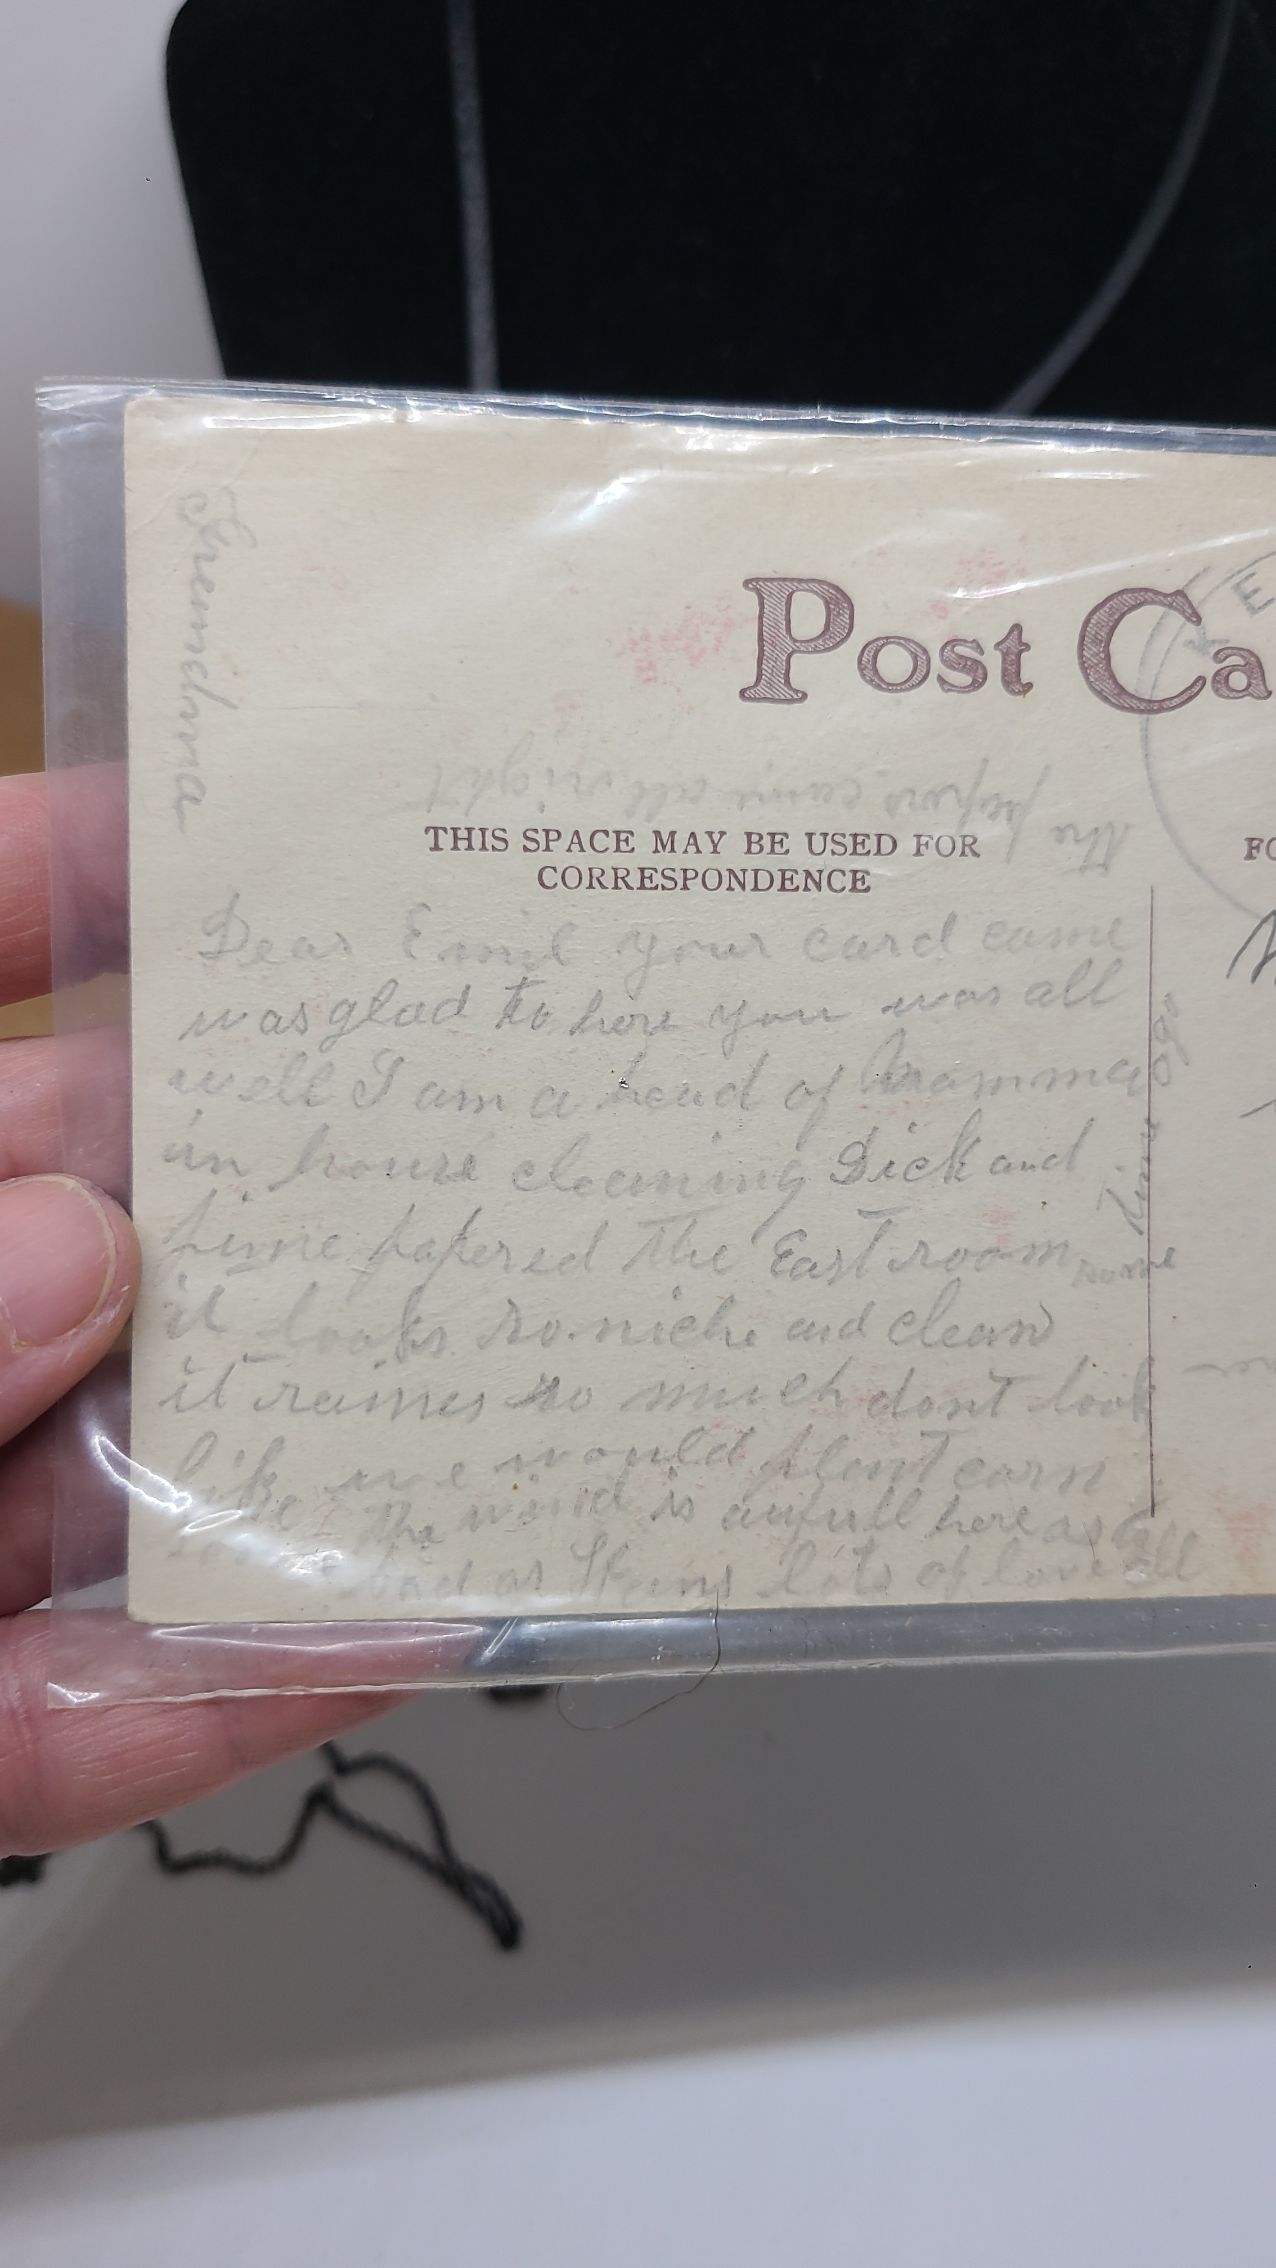 Post Ca
the papers came all right
THIS SPACE MAY BE USED FOR
CORRESPONDENCE
FO
Dear Emil your card came
was glad to here you was all
well I am a head of Mamma
in house cleaning Dick and
papered the East room
some time ago
it looks so niche and clean
it raines so much dont look
like we would plant corn
the wind is awfull here as
bad as lots of love all